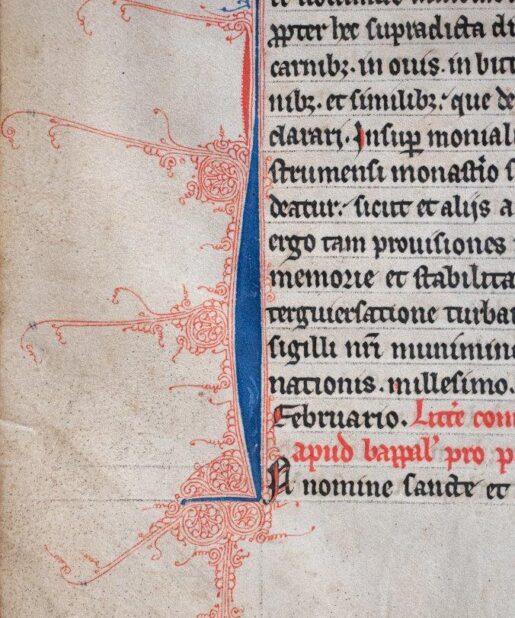 ꝓpter hec supradicta di
carnibꝫ. in ouis. in but
nibꝫ. et similibꝫ. que de
clarari. Insuꝑ monial
strumensi monastio s
deatur. sicut et alijs a
ergo tam prouisiones
memorie et stabilita
terguiersatione turba
sigilli nrī munimin
nationis. millesimo.
Februario. Littē com
apud bappal' pro p
N nomine sancte et